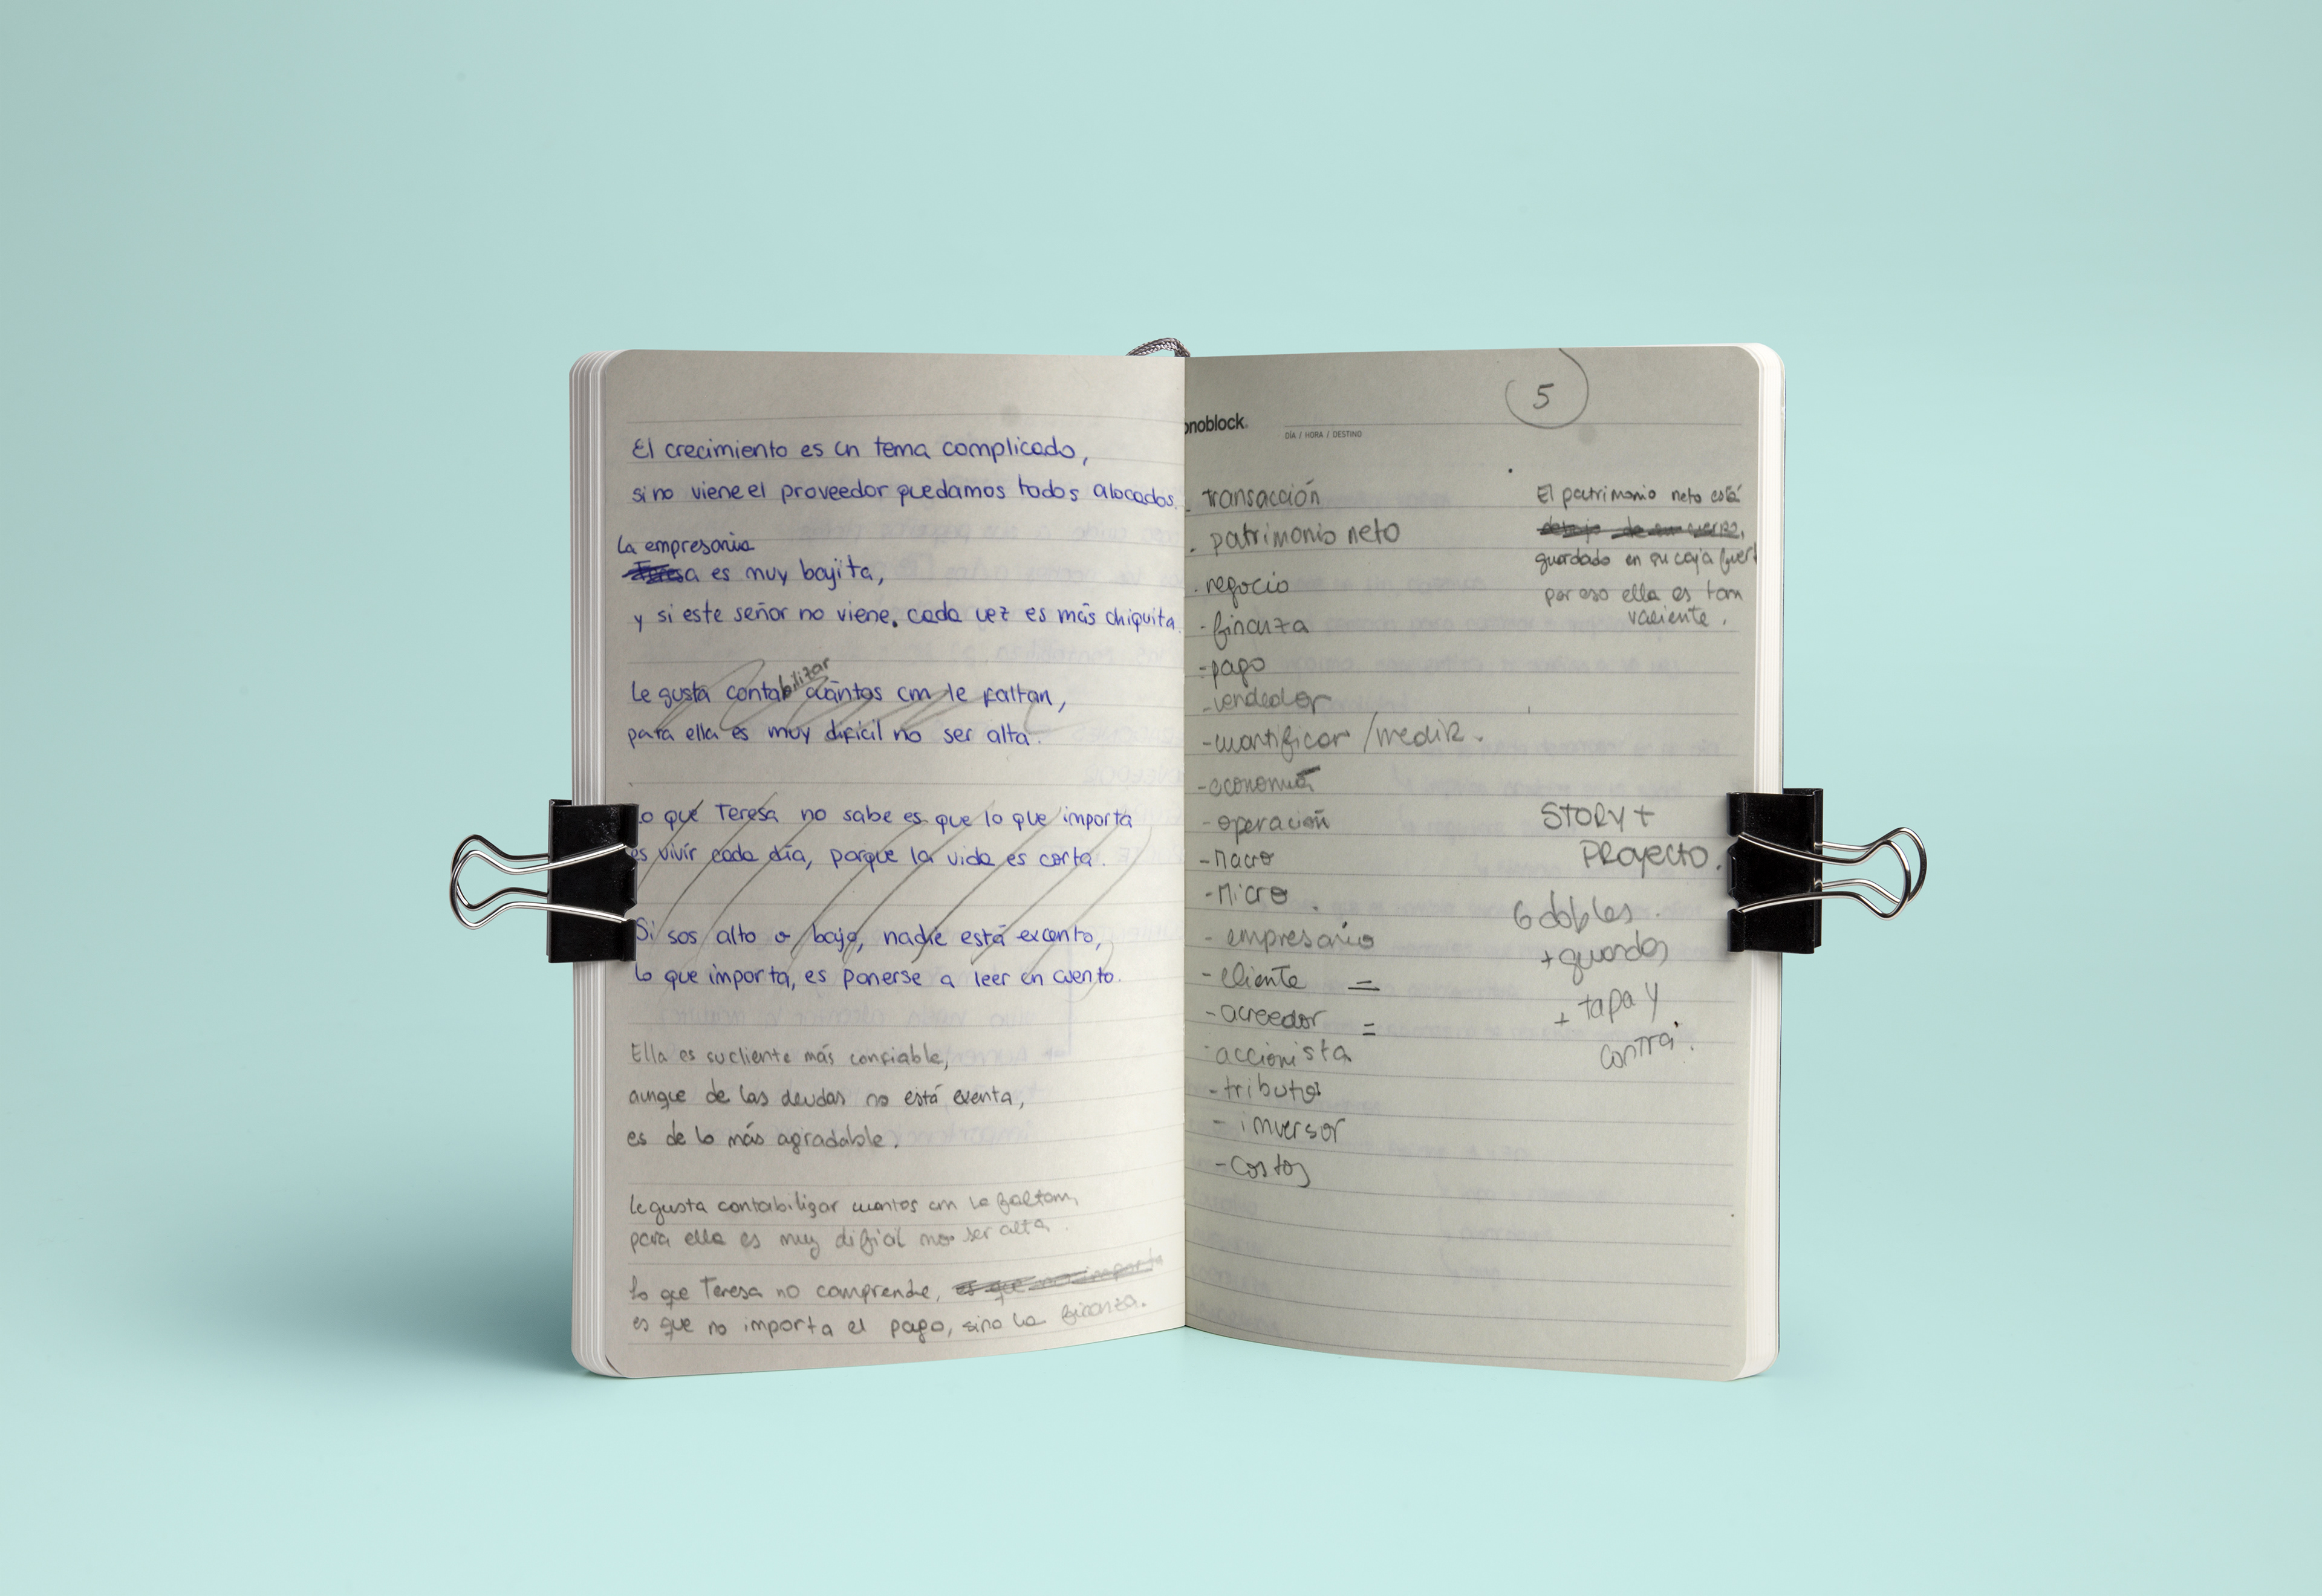 El crecimiento es un tema complicado,
si no viene el proveedor quedamos todos alocados.
La empresaria
Teresa es muy bajita,
y si este señor no viene. cada vez es más chiquita.
bilizar
Le gusta conta cuántos cm le faltan,
para ella es muy dificil no ser alta.
Lo que Teresa no sabe es que lo que importa
es vivir cada día, porque la vida es corta.
Si sos alto o bajo, nadie está excento,
lo que importa, es ponerse a leer un cuento.
Ella es su cliente más confiable,
aunque de las deudas no está exenta,
es de lo más agradable.
le gusta contabilizar cuantos cm le faltan,
para ella es muy dificil no ser alta.
Lo que Teresa no comprende, es que no importa
es que no importa el pago, sino la finanza.
5
onoblock
DÍA / HORA / DESTINO
. transacción
. patrimonio neto
. negocio
- finanza
- pago
- vendedor
- cuantificar / medir.
- economía
- operación
- macro
- micro
- empresario
- cliente =
- acreedor =
- accionista
- tributos
- inversor
- costos
El patrimonio neto está
debajo de su
guardado en su caja fuert
por eso ella es tan
valiente.
STORY +
PROYECTO.
6 dobles.
+ guardas
+ tapa y
contra.